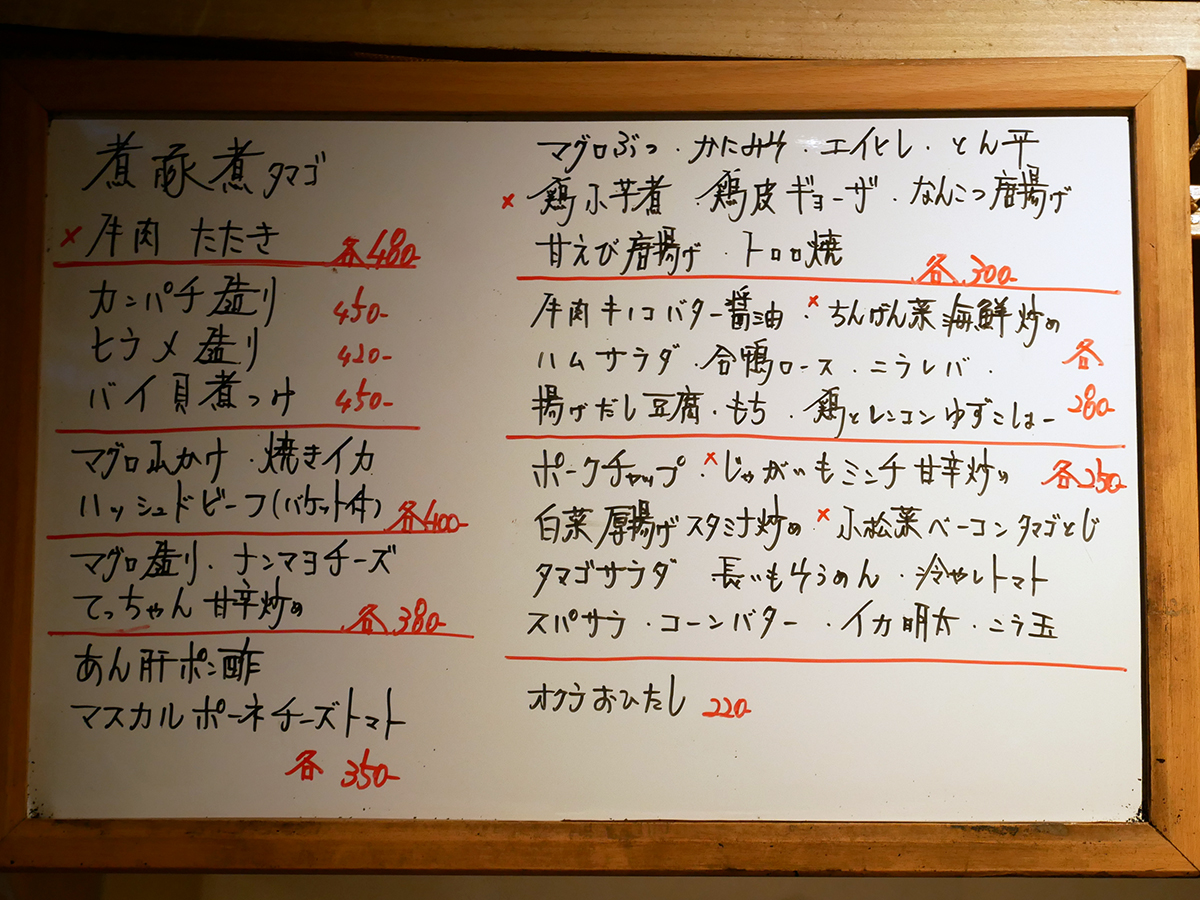 煮豚煮タマゴ
×牛肉 たたき 各480-
カンパチ盛り 450-
ヒラメ盛り 420-
バイ貝煮つけ 450-
マグロ山かけ・焼きイカ
ハッシュドビーフ(バケット付) 各400-
マグロ盛り・ナンマヨチーズ
てっちゃん甘辛炒め 各380-
あん肝ポン酢
マスカルポーネチーズトマト
各350-
マグロぶつ・かにみそ・エイヒレ・とん平
×鶏小芋煮 鶏皮ギョーザ・なんこつ唐揚げ
甘えび唐揚げ・トロロ焼 各300-
牛肉キノコバター醤油・×ちんげん菜海鮮炒め
ハムサラダ・合鴨ロース・ニラレバ・ 各
揚げだし豆腐・もち・鶏とレンコンゆずこしょー 280-
ポークチャップ・×じゃがいもミンチ甘辛炒め 各250-
白菜厚揚げスタミナ炒め×小松菜ベーコンタマゴとじ
タマゴサラダ 長いもそうめん・冷やしトマト
スパサラ・コーンバター・イカ明太・ニラ玉
オクラおひたし 220-